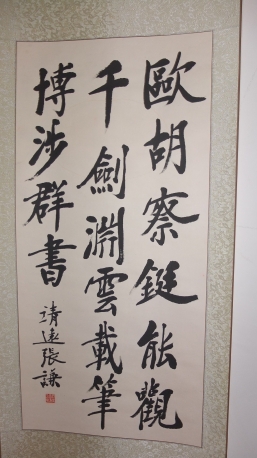 歐胡察鋌能觀
千劍淵雲載筆
博涉群書
靖遠張謙